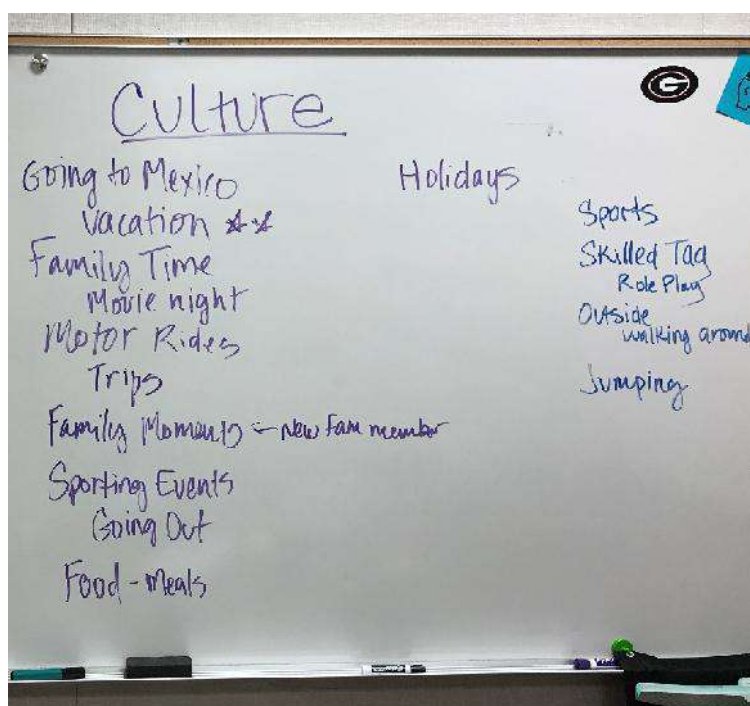 Culture
Going to Mexico
Vacation **
Family Time
Movie night
Motor Rides
Trips
Family Moments - New Fam member
Sporting Events
Going Out
Food - Meals
Holidays
Sports
Skilled Tag
Role Play
Outside
walking around
Jumping
G